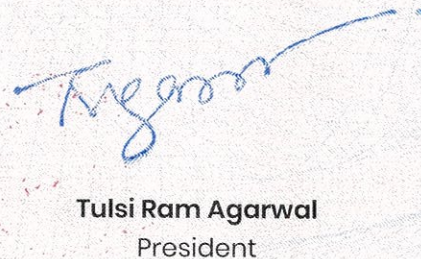 Tulsi Ram Agarwal
President